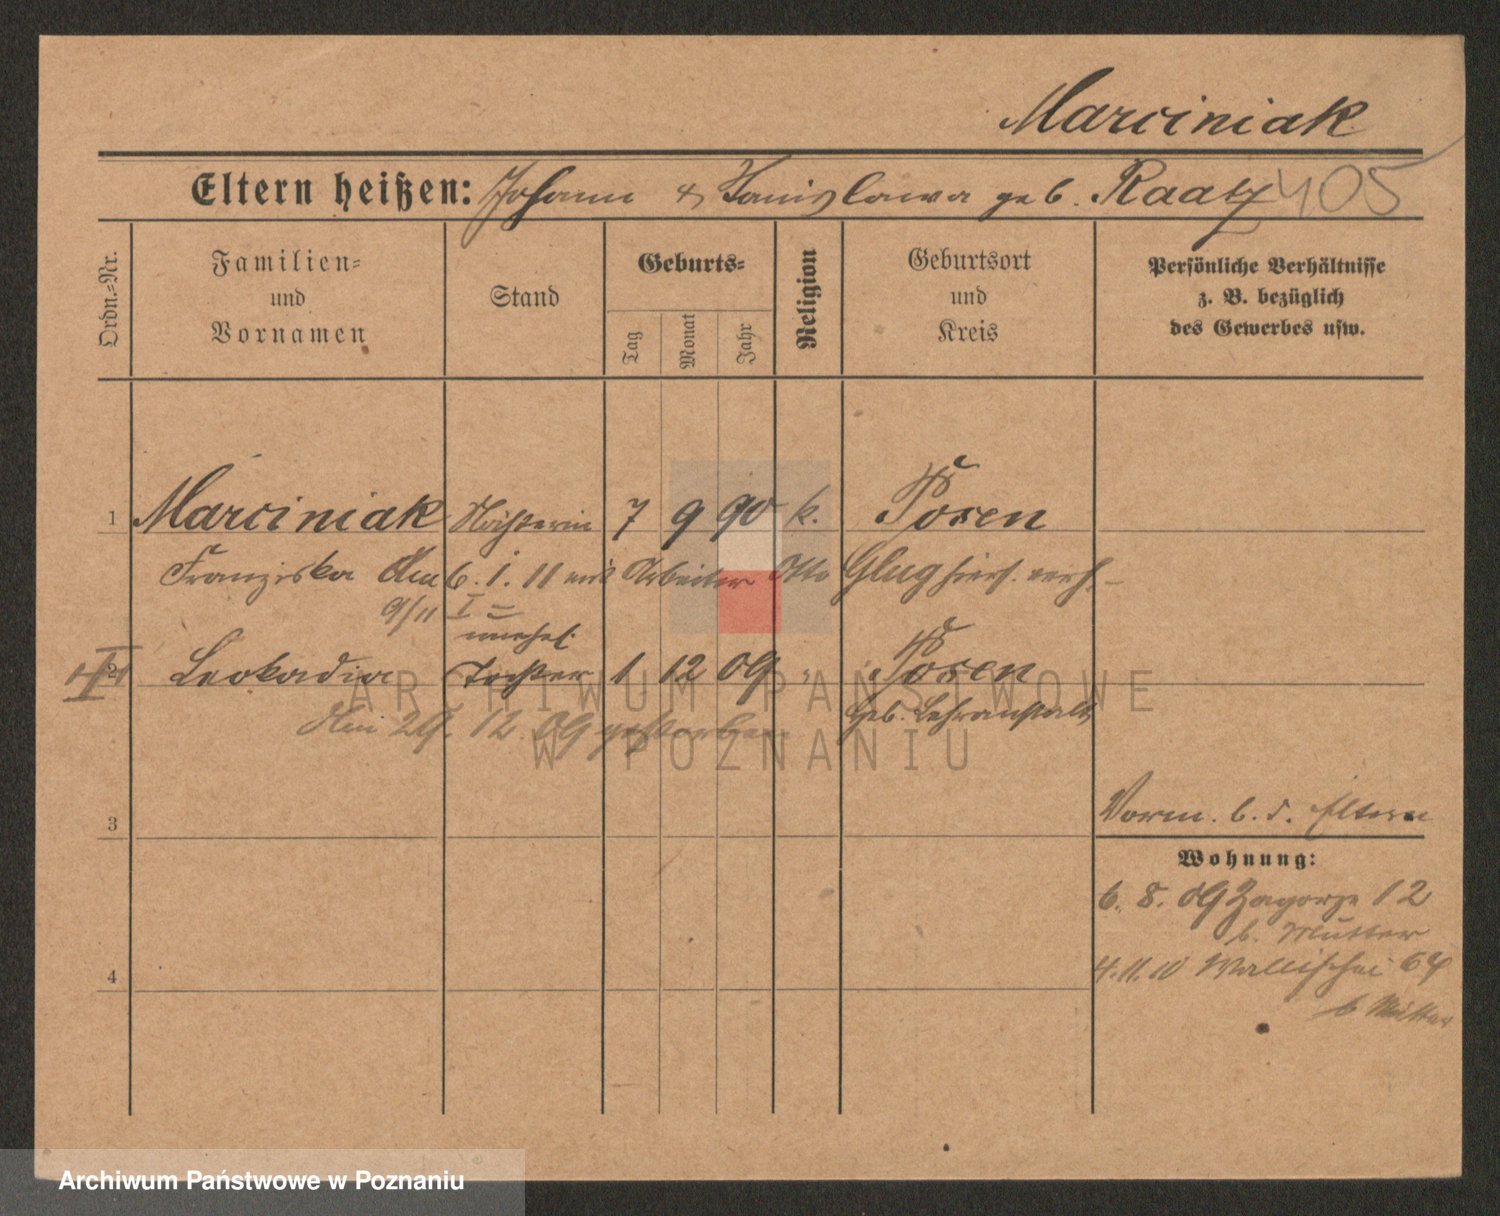 Marciniak
Eltern heißen: Johann & Stanislawa geb. Raatz 405
Ordn.-Nr.
Familien- und Vornamen
Stand
Geburts-
Tag
Monat
Jahr
Religion
Geburtsort und Kreis
Persönliche Verhältnisse z. B. bezüglich des Gewerbes usw.
1 Marciniak Näherin 7 9 90 k. Posen
Franziska Am 6. 1. 11 mit Arbeiter Otto Glug hiers. verh.
9/11 I
unehel.
2 Leokadia Tochter 1 12 09 " Posen
Geb. Lehranstalt
Am 29. 12. 09 gestorben
3
Vorm. b. d. Eltern
Wohnung:
6. 8. 09 Zagorze 12
b. Mutter
4
4.11.10 Wallischei 64
b Mutter
ARCHIWUM PAŃSTWOWE
W POZNANIU
Archiwum Państwowe w Poznaniu